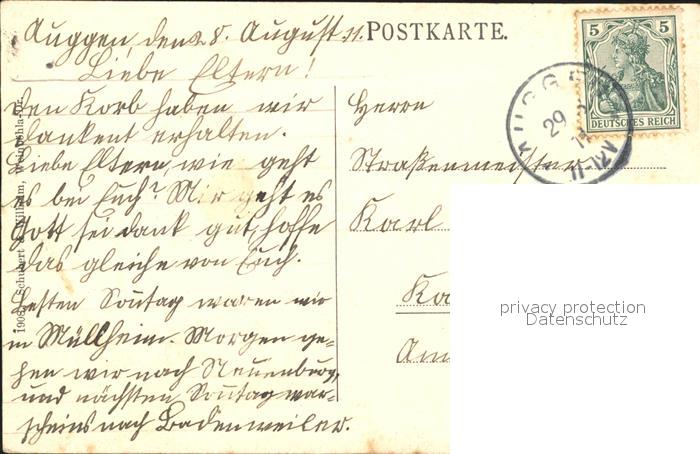 Auggen, den 28. August 11.
POSTKARTE.
Liebe Eltern!
Den Korb haben wir
dankent erhalten.
Liebe Eltern, wie geht
es bei Euch? Mir geht es
Gott sei dank gut, hoffe
das gleiche von Euch.
Letzten Sontag waren wir
in Müllheim. Morgen ge-
hen wir nach Neuenburg,
und nächsten Sontag war-
scheins nach Badenweiler.
Herrn
Straßenmeister
Karl
Ka
Am
5 5
DEUTSCHES REICH
AUGGEN
29
privacy protection
Datenschutz
1908